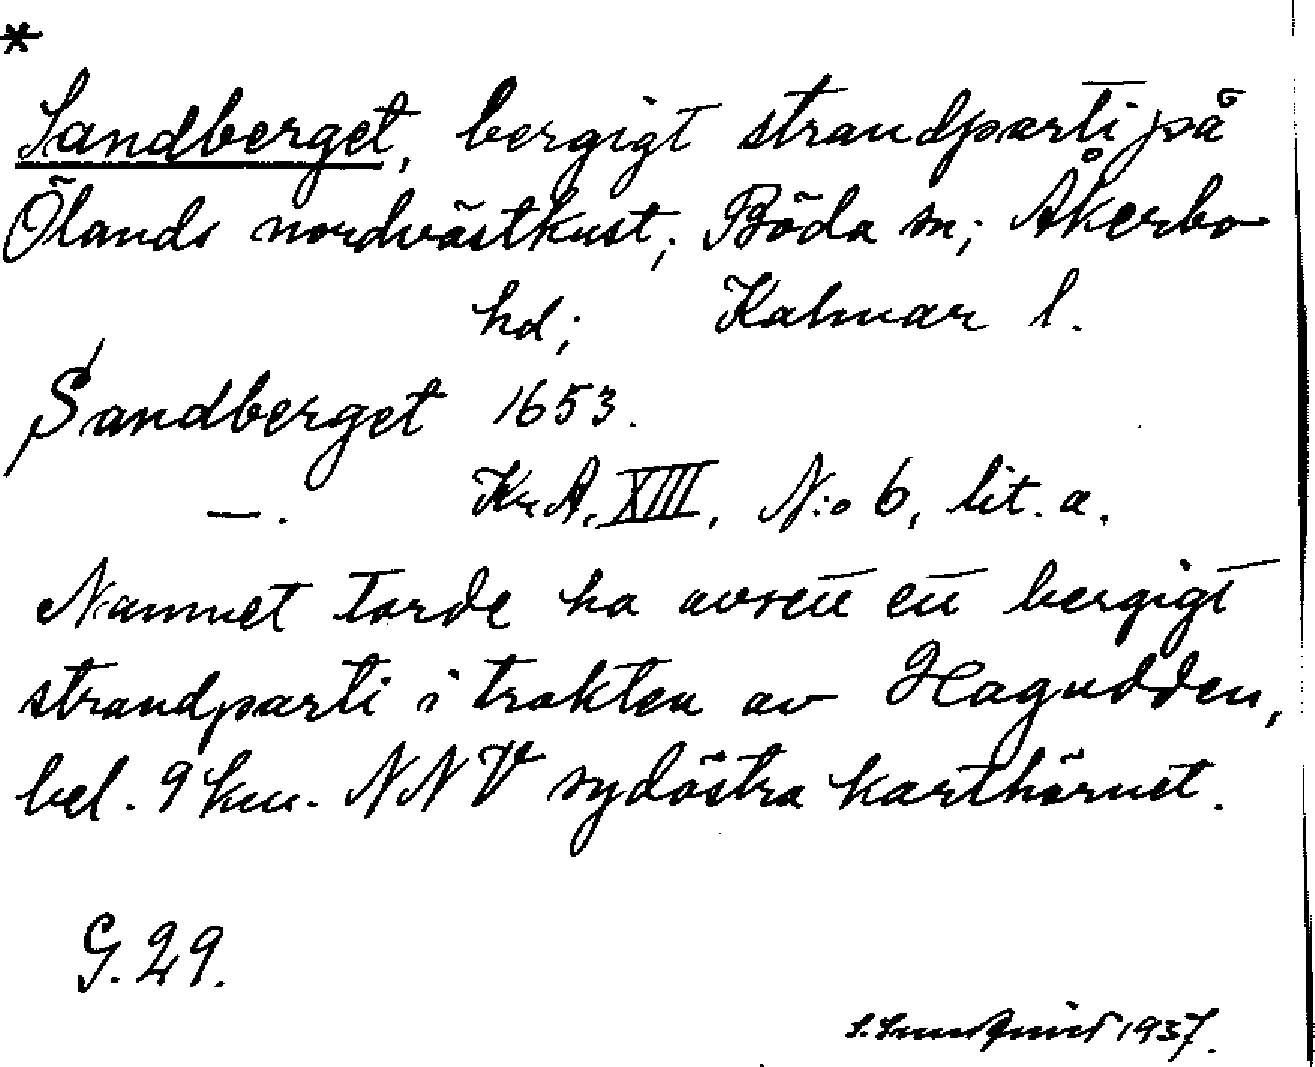 *
Sandberget, bergigt strandparti på
Ölands nordvästkust; Böda sn; Åkerbo
hd; Kalmar l.
Sandberget 1653.
—. Kr.A. XIII, N:o 6, lit. a.
Namnet torde ha avsett ett bergigt
strandparti i trakten av Hagudden,
bel. 9 km. NNV sydöstra karthörnet.
G. 29.
S. Sundqvist 1937.